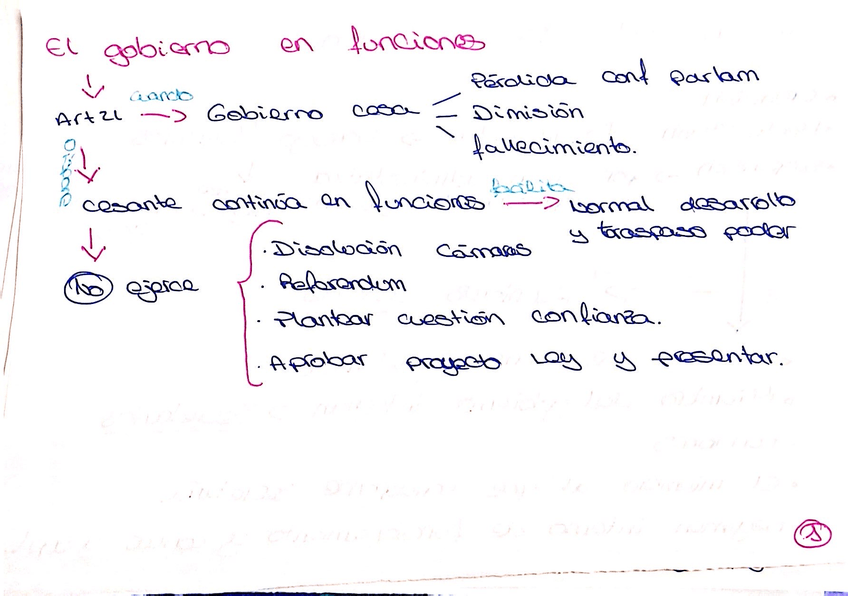 El gobierno en funciones
Art 21 cuando Gobierno cesa
Pérdida conf parlam
Dimisión
fallecimiento.
cesante continúa en funciones facilita normal desarrollo
y traspaso poder
No ejerce
· Disolución Cámaras
· Referendum
· Plantear cuestión confianza.
· Aprobar proyecto Ley y presentar.